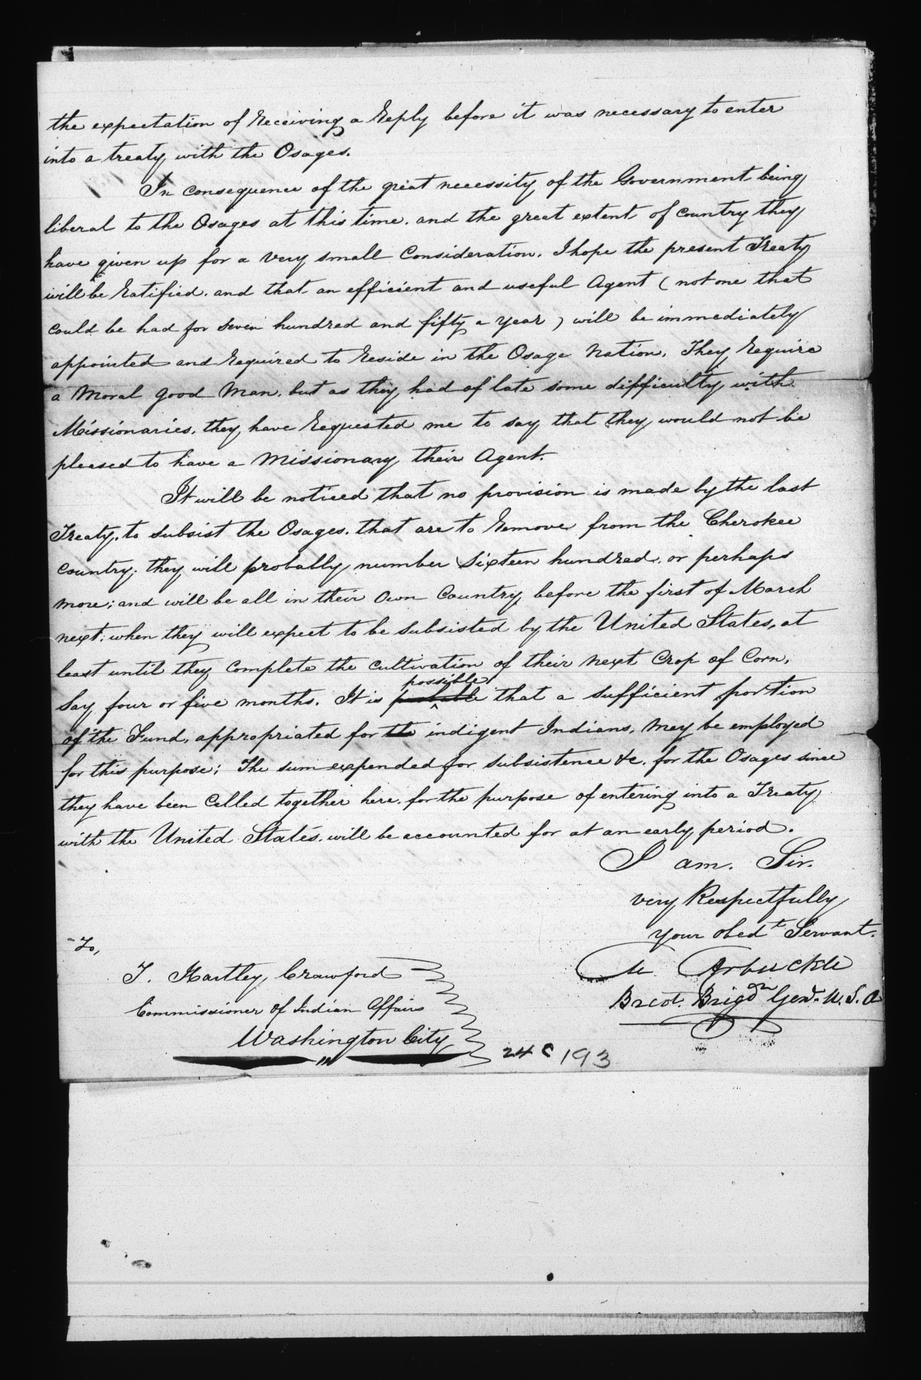 the expectation of Receiving a Reply before it was necessary to enter
into a treaty with the Osages.
In consequence of the great necessity of the Government being
liberal to the Osages at this time, and the great extent of country they
have given up for a very small Consideration, I hope the present Treaty
will be Ratified, and that an efficient and useful Agent (not one that
could be had for seven hundred and fifty a year) will be immediately
appointed and Required to Reside in the Osage Nation. They Require
a Moral good Man, but as they had of late some difficulty with
Missionaries, they have Requested me to say that they would not be
pleased to have a Missionary their Agent.
It will be noticed that no provision is made by the last
Treaty, to subsist the Osages, that are to Remove from the Cherokee
Country; they will probably number Sixteen hundred, or perhaps
more; and will be all in their own Country before the first of March
next; when they will expect to be subsisted by the United States, at
least until they Complete the cultivation of their next Crop of Corn,
possible
Say four or five months. It is probable that a sufficient portion
of the Fund, appropriated for the indigent Indians, may be employed
for this purpose; The sum expended for subsistence &c, for the Osages since
they have been Celled together here, for the purpose of entering into a Treaty
with the United States, will be accounted for at an early period.
I am. Sir.
very Respectfully
your obedt Servant.
M Arbuckle
Brevt. Brigdr Genl. U.S.A
To,
T. Hartley Crawford
Commissioner of Indian Affairs
Washington City
24 C 193